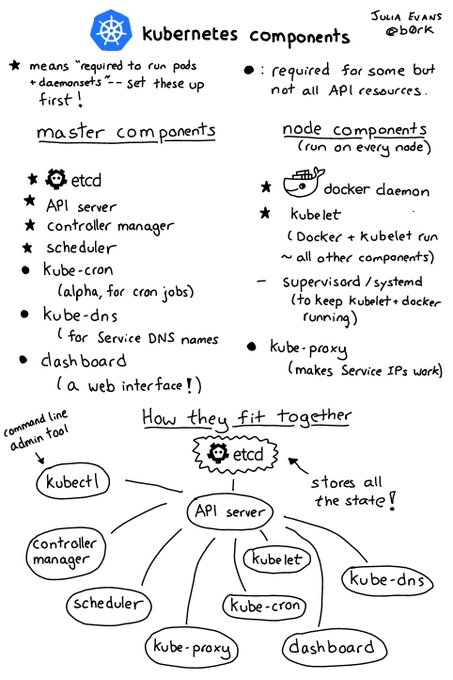 JULIA EVANS
@b0rk
kubernetes components
★ means "required to run pods
+ daemonsets" -- set these up
first!
● : required for some but
not all API resources.
master components
★ etcd
★ API server
★ controller manager
★ scheduler
● kube-cron
(alpha, for cron jobs)
● kube-dns
(for Service DNS names
● dashboard
(a web interface!)
node components
(run on every node)
★ docker daemon
★ kubelet
(Docker + kubelet run
~ all other components)
- supervisord/systemd
(to keep kubelet + docker
running)
● kube-proxy
(makes Service IPs work)
How they fit together
command line
admin tool
etcd
stores all
the state!
kubectl
API server
controller
manager
kubelet
kube-dns
scheduler
kube-cron
kube-proxy
dashboard